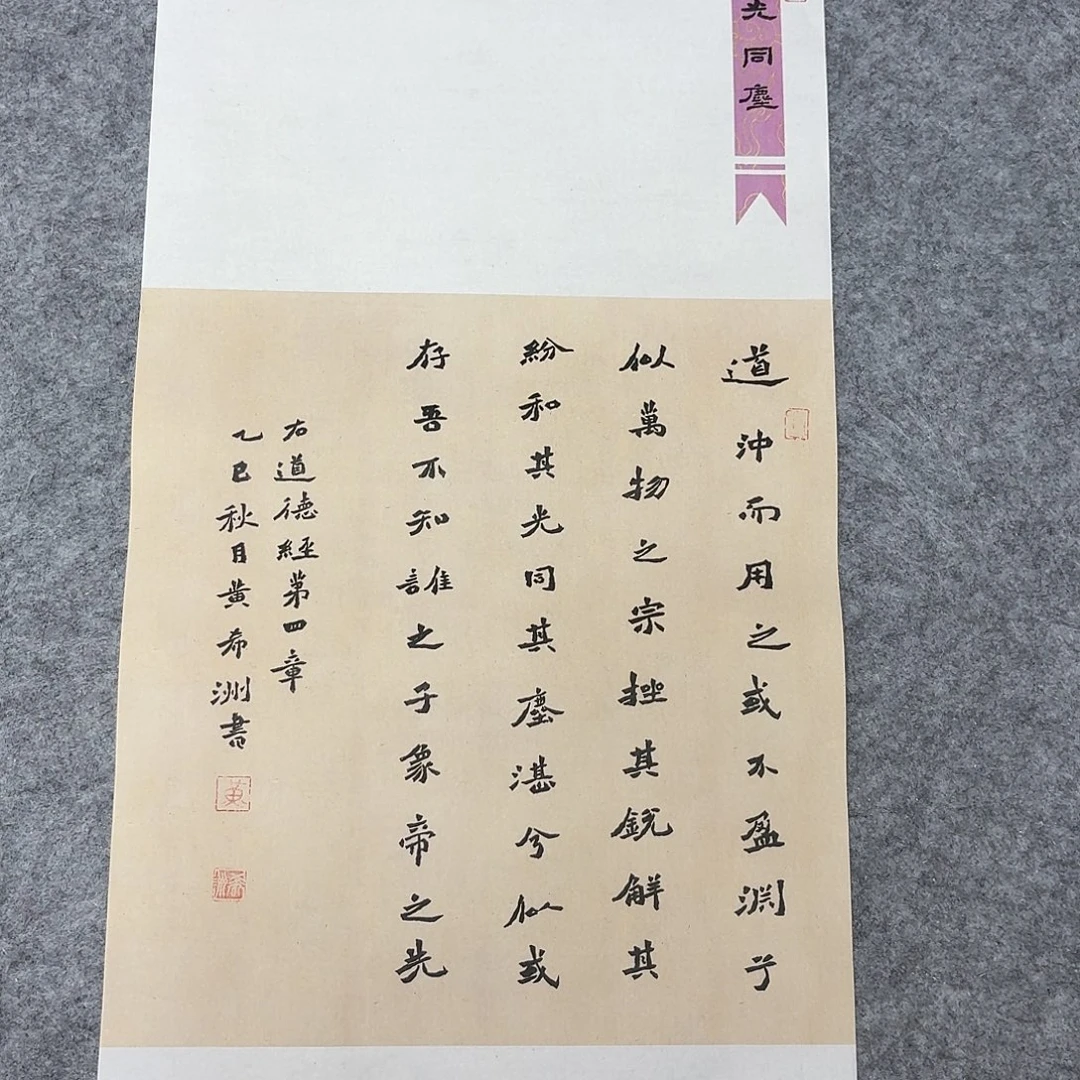 光同塵
道沖而用之或不盈淵乎
似萬物之宗挫其銳解其
紛和其光同其塵湛兮似或
存吾不知誰之子象帝之先
右道德經第四章
乙巳秋月黃希洲書
黃